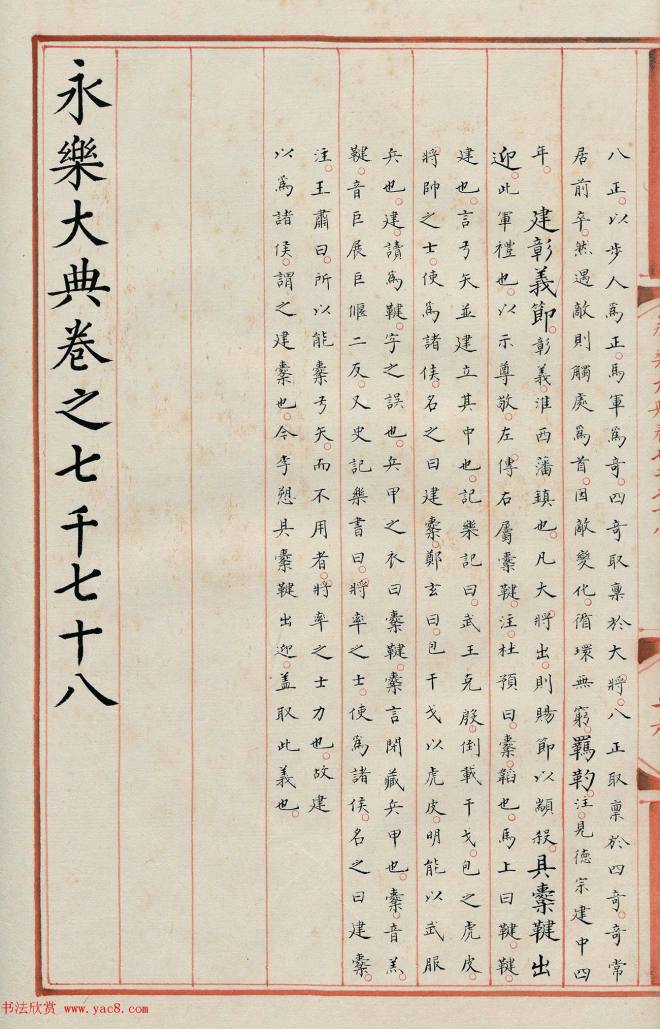 八正。以步人爲正。馬軍爲奇。四奇取稟於大將。八正取稟於四奇。奇常
居前卒。然遇敵則觸處爲首。因敵變化。循環無窮。羈靮。注。見德宗建中四
年。建彰義節。彰義。淮西藩鎮也。凡大將出。則賜節以顓殺。具櫜鞬出
迎。此軍禮也。以示尊敬。左傳右屬櫜鞬。注。杜預曰。櫜。韜也。馬上曰鞬。鞬。
建也。言弓矢並建立其中也。記樂記曰。武王克殷。倒載干戈。包之虎皮。
將帥之士。使爲諸侯。名之曰建櫜。鄭玄曰。包干戈以虎皮。明能以武服
兵也。建。讀爲鞬。字之誤也。兵甲之衣曰櫜鞬。櫜言閉藏兵甲也。櫜。音羔。
鞬。音巨展巨偃二反。又史記樂書曰。將率之士。使爲諸侯。名之曰建櫜。
注。王肅曰。所以能櫜弓矢。而不用者。將率之士力也。故建
以爲諸侯。謂之建櫜也。今李愬具櫜鞬出迎。蓋取此義也。
永樂大典卷之七千七十八
书法欣赏 www.yac8.com